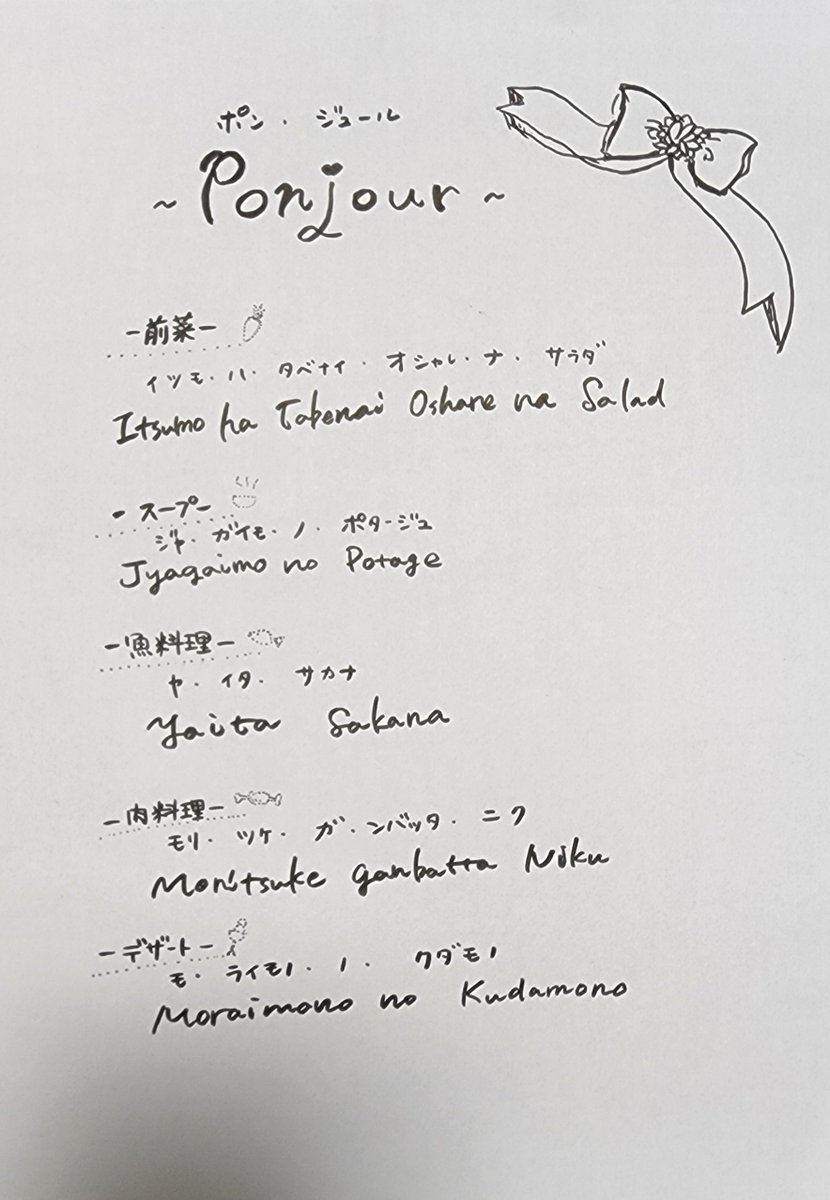 ポン・ジュール
~ Ponjour ~
-前菜-
イツモ・ハ・タベナイ・オシャレ・ナ・サラダ
Itsumo ha Tabenai Oshare na Salad
-スープ-
ジャ・ガイモ・ノ・ポタージュ
Jyagaimo no Potage
-魚料理-
ヤ・イタ・サカナ
Yaita Sakana
-肉料理-
モリ・ツケ・ガ・ンバッタ・ニク
Moritsuke ganbatta Niku
-デザート-
モ・ライモノ・ノ・クダモノ
Moraimono no Kudamono